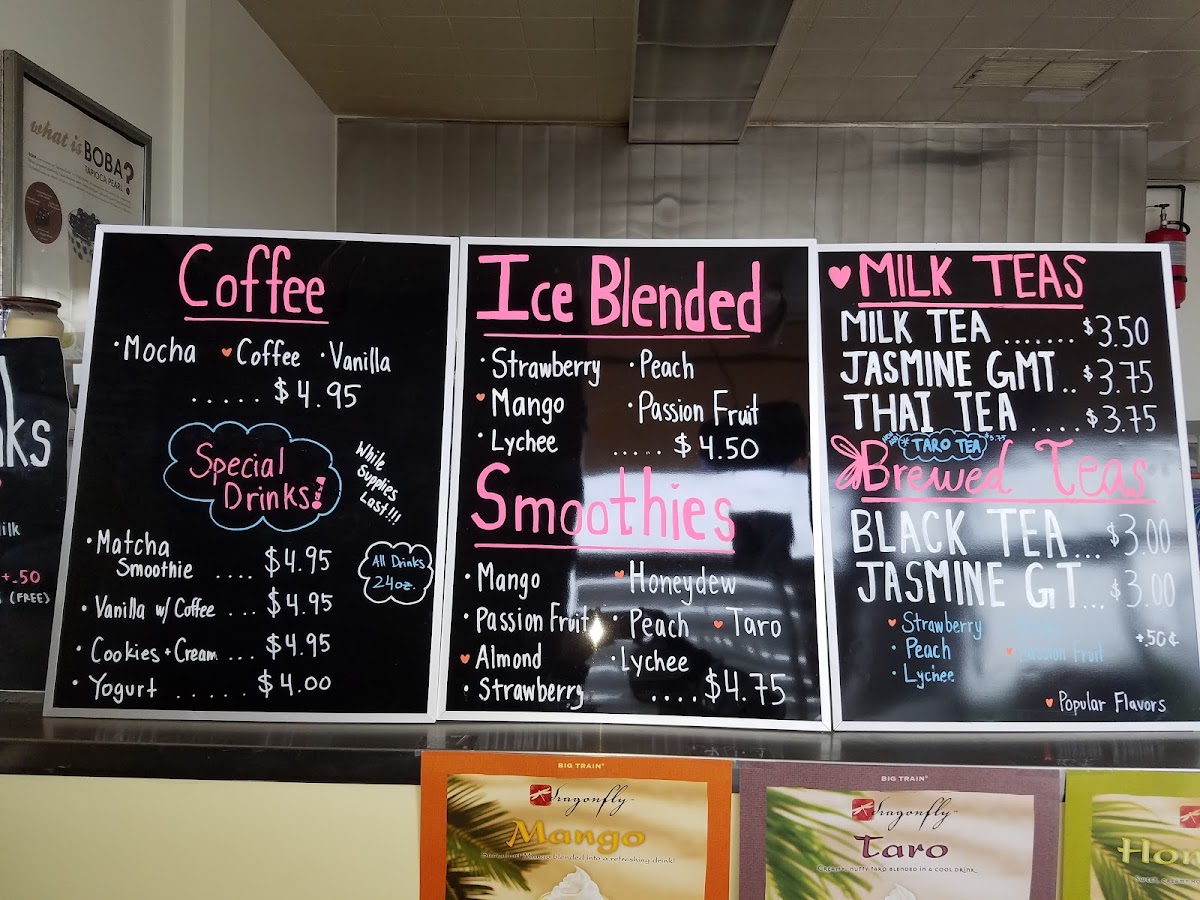 what is
BOBA?
TAPIOCA PEARL
ks
ilk
+.50
(FREE)
Coffee
·Mocha ♥Coffee ·Vanilla
..... $4.95
Special
Drinks!
While
Supplies
Last!!!
·Matcha
Smoothie .... $4.95
·Vanilla w/ Coffee ... $4.95
·Cookies + Cream ... $4.95
·Yogurt ...... $4.00
All Drinks
24oz.
Ice Blended
·Strawberry ·Peach
♥Mango ·Passion Fruit
·Lychee ..... $4.50
Smoothies
·Mango ♥Honeydew
·Passion Fruit ·Peach ♥Taro
♥Almond ·Lychee
·Strawberry .... $4.75
♥MILK TEAS
MILK TEA ....... $3.50
JASMINE GMT.. $3.75
THAI TEA .... $3.75
TARO TEA 3.75
Brewed Teas
BLACK TEA... $3.00
JASMINE GT... $3.00
♥Strawberry
·Peach ♥Passion Fruit +50¢
·Lychee
♥Popular Flavors
BIG TRAIN®
dragonfly™
Mango
blended into a refreshing drink!
BIG TRAIN®
dragonfly™
Taro
CREAMY, NUTTY TARO BLENDED IN A COOL DRINK.
Hon
SWEET, CREAMY